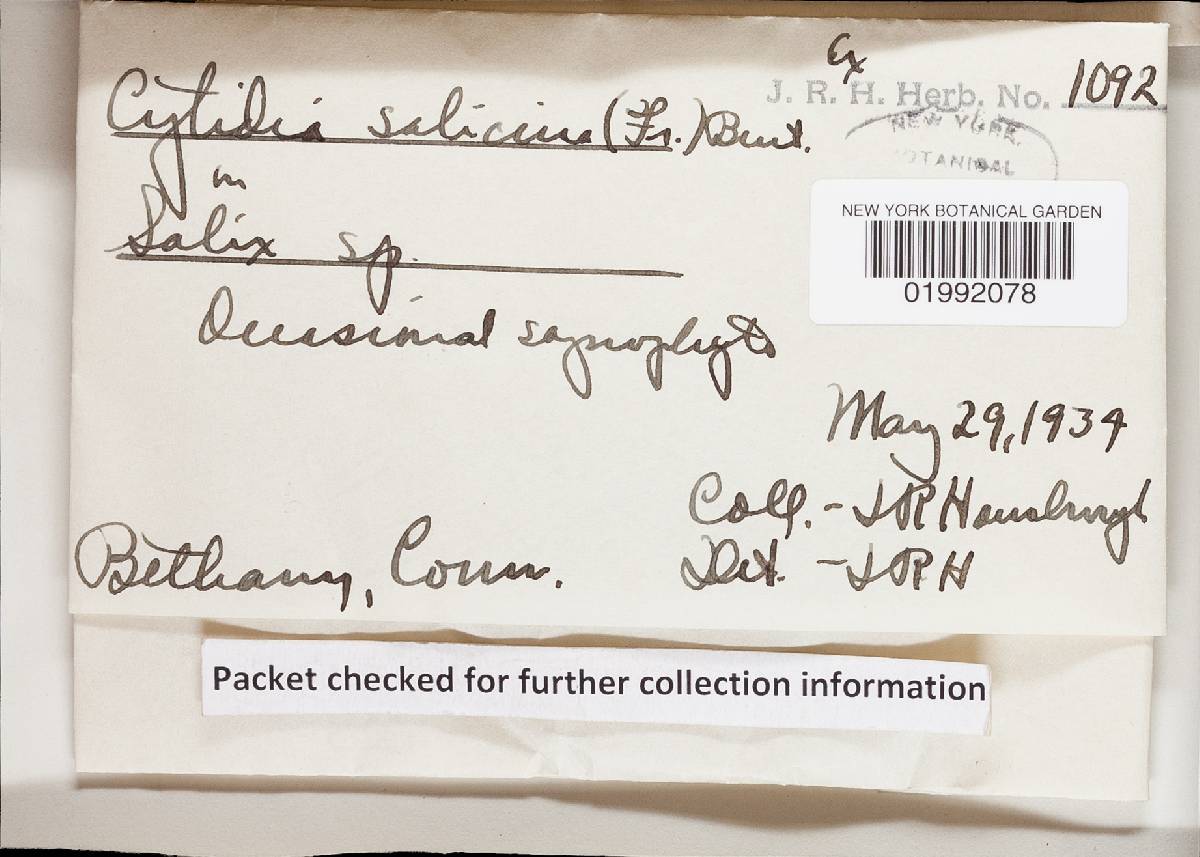 Ex
J. R. H. Herb. No. 1092
Cytidia salicina (Fr.) Burt.
NEW YORK
BOTANICAL
on
Salix sp.
NEW YORK BOTANICAL GARDEN
01992078
Occasional saprophyte
May 29, 1934
Coll. - J R Hansbrough
Det. - J R H
Bethany, Conn.
Packet checked for further collection information